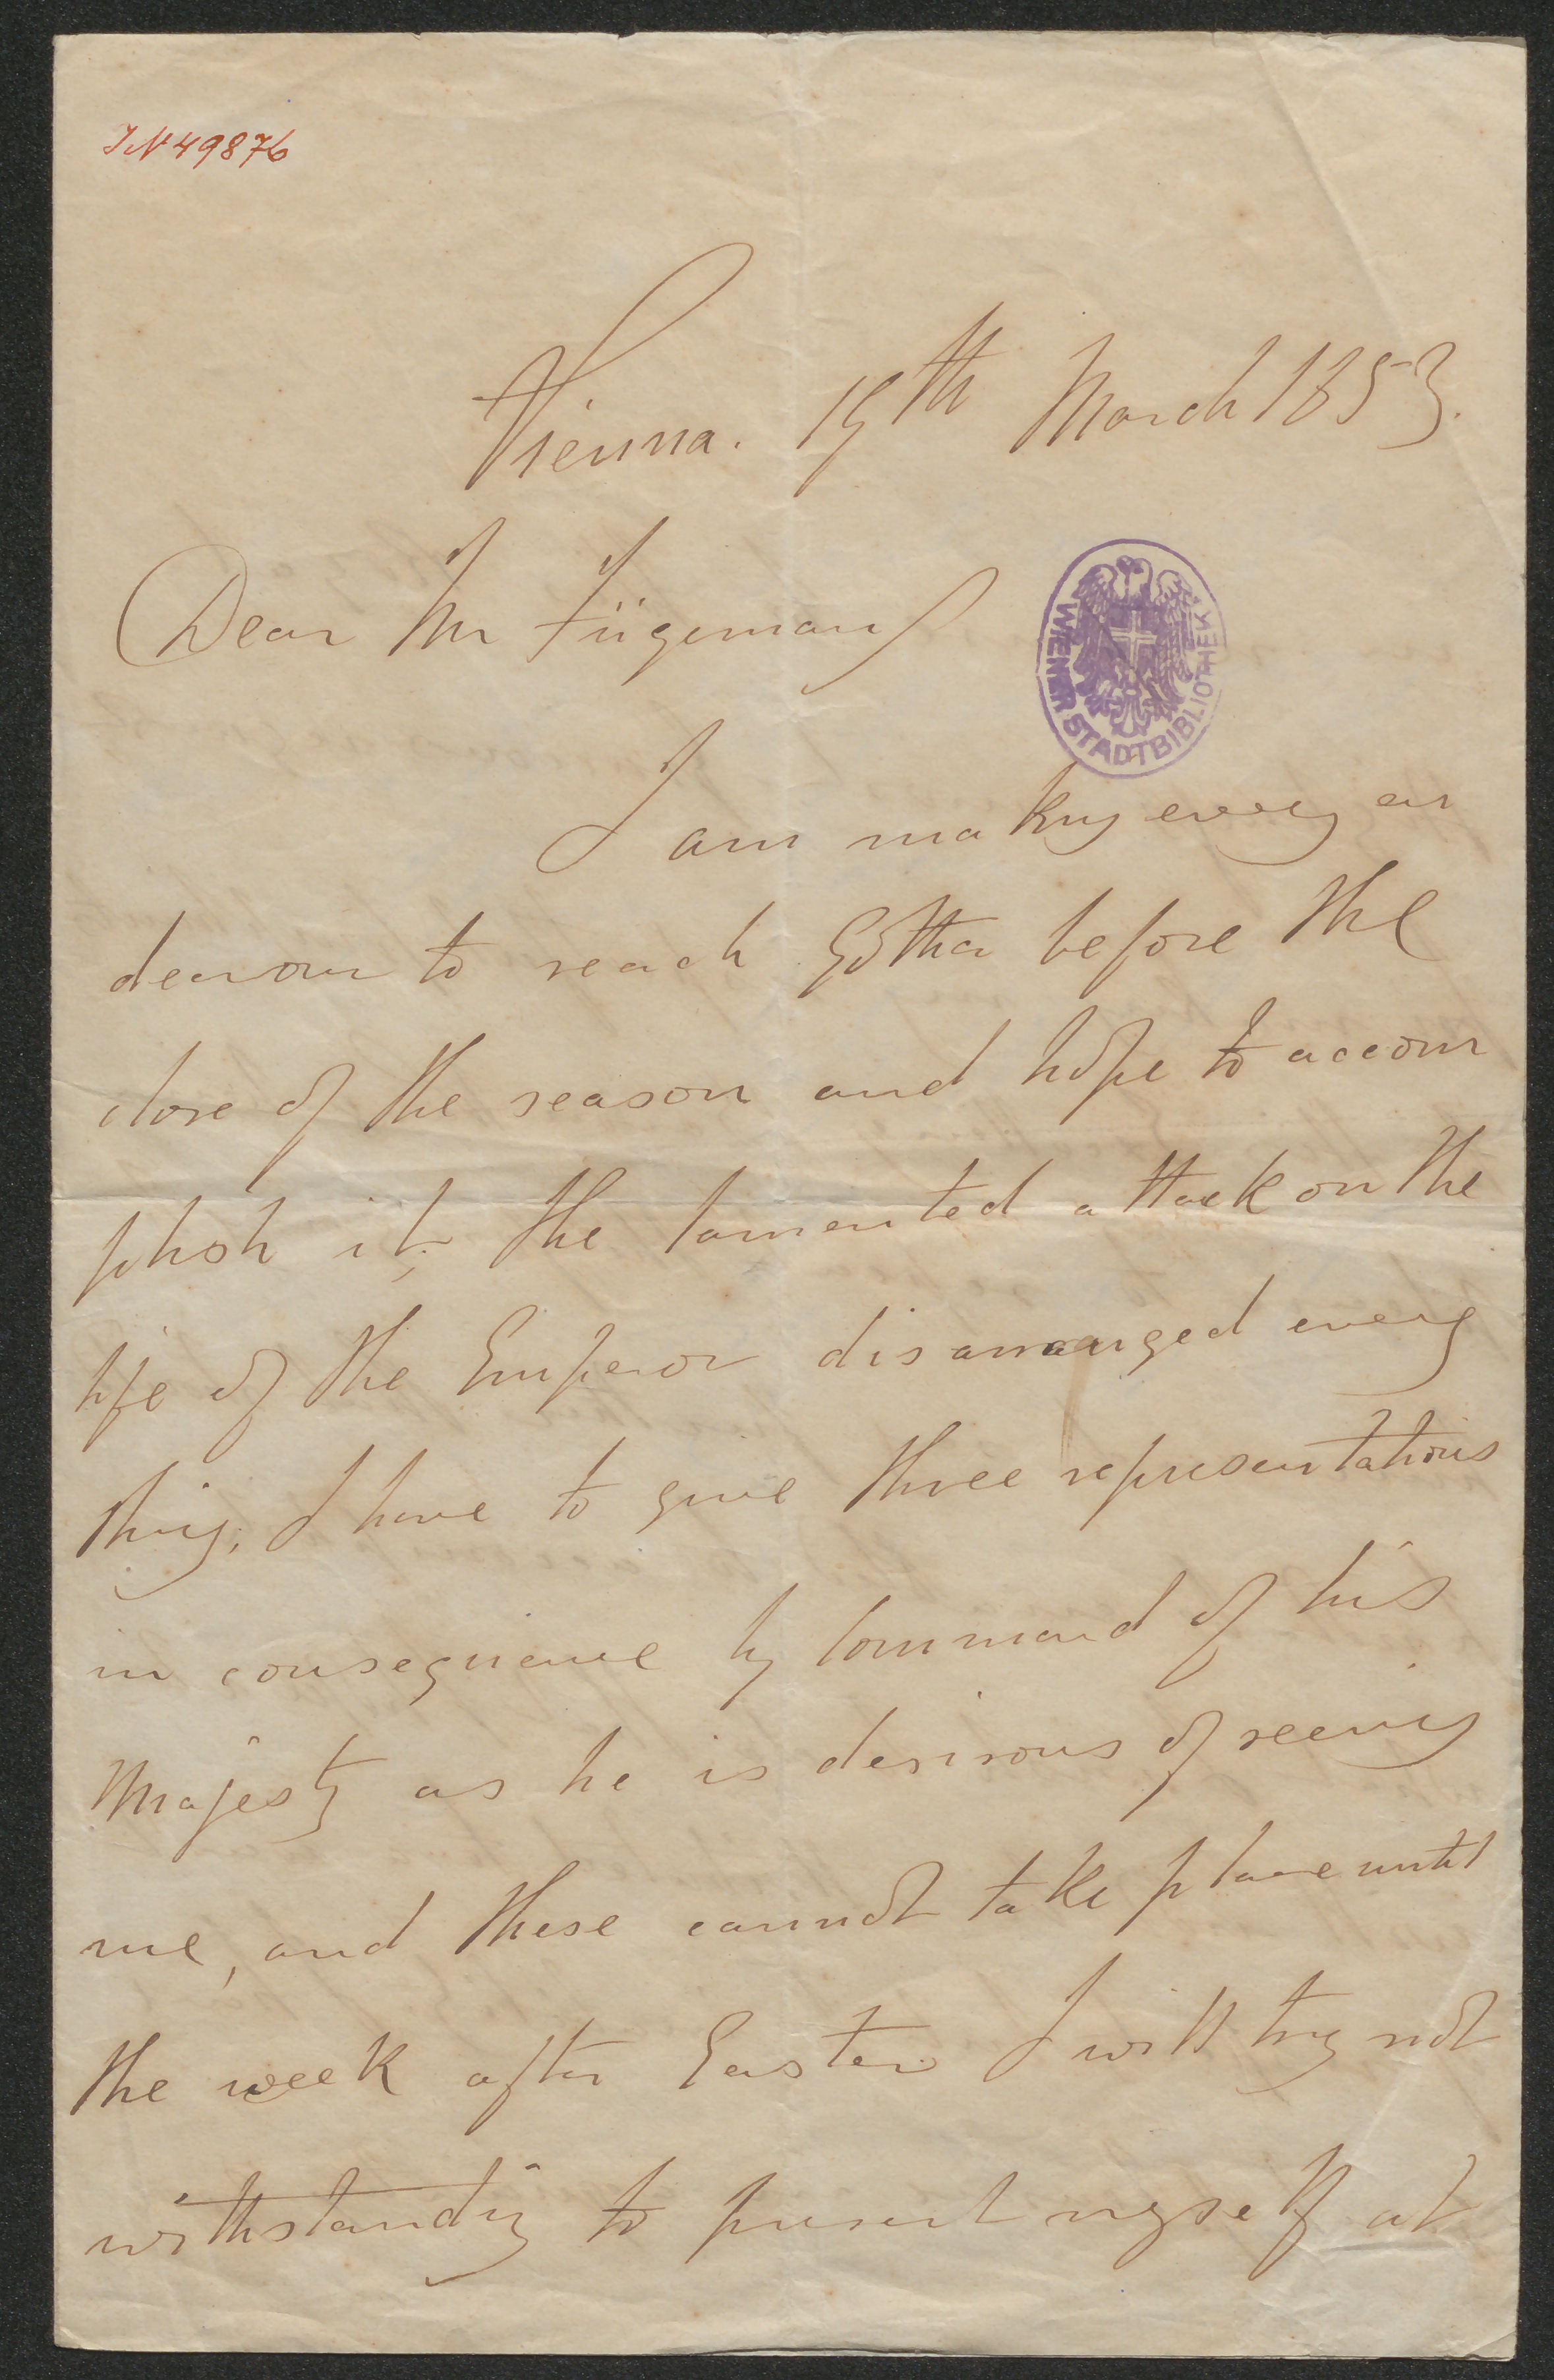 IN 49876
Vienna. 19th March 1853.
Dear Mr Fügeman
WIENER STADTBIBLIOTHEK
I am making every en
deavour to reach Gotha before the
close of the season and hope to accom
plish it, the lamented attack on the
life of the Emperor disarranged every
thing, I have to give three representations
in consequence by Command of his
Majesty as he is desirous of seeing
me, and these cannot take place until
the week after Easter I will try not
withstanding to present myself at